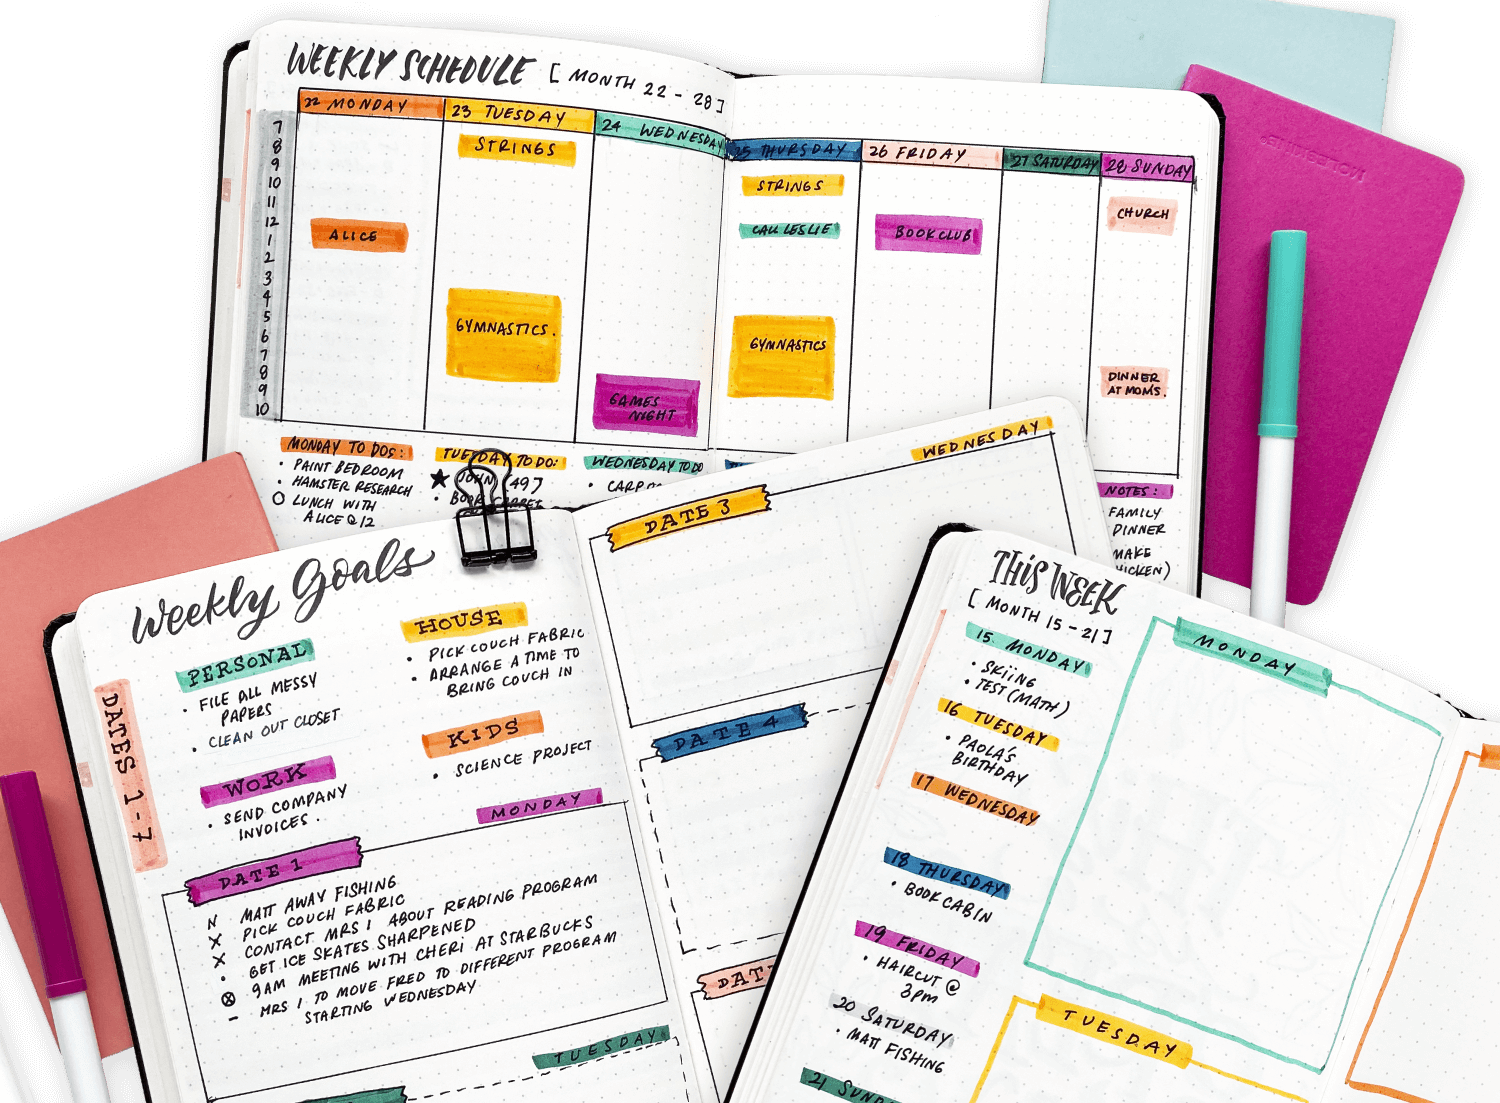 WEEKLY SCHEDULE [ MONTH 22 - 28 ]
22 MONDAY
23 TUESDAY
24 WEDNESDAY
25 THURSDAY
26 FRIDAY
27 SATURDAY
28 SUNDAY
7
8
9
10
11
12
1
2
3
4
5
6
7
8
9
10
ALICE
STRINGS
GYMNASTICS.
GAMES
NIGHT
STRINGS
CALL LESLIE
GYMNASTICS
BOOK CLUB
CHURCH
DINNER
AT MOM'S.
MONDAY TO DOS:
• PAINT BEDROOM
• HAMSTER RESEARCH
O LUNCH WITH
ALICE @ 12
TUESDAY TO DO:
★ JOHN [49]
• BOOK
WEDNESDAY TO DO
NOTES:
FAMILY
DINNER
MAKE
HICKEN)
MOLESKINE
Weekly Goals
DATES 1-7
PERSONAL
• FILE ALL MESSY
PAPERS
• CLEAN OUT CLOSET
WORK
• SEND COMPANY
INVOICES.
HOUSE
• PICK COUCH FABRIC
• ARRANGE A TIME TO
BRING COUCH IN
KIDS
• SCIENCE PROJECT
MONDAY
DATE 1
N MATT AWAY FISHING
X PICK COUCH FABRIC
X CONTACT MRS 1 ABOUT READING PROGRAM
• GET ICE SKATES SHARPENED
⊗ 9AM MEETING WITH CHERI AT STARBUCKS
– MRS 1 TO MOVE FRED TO DIFFERENT PROGRAM
STARTING WEDNESDAY
TUESDAY
WEDNESDAY
DATE 3
DATE 4
DAT
THIS WEEK
[ MONTH 15 - 21 ]
15 MONDAY
• SKIING
• TEST (MATH)
16 TUESDAY
• PAOLA'S
BIRTHDAY
17 WEDNESDAY
18 THURSDAY
• BOOK CABIN
19 FRIDAY
• HAIRCUT @
3PM
20 SATURDAY
• MATT FISHING
21 SUND
MONDAY
TUESDAY